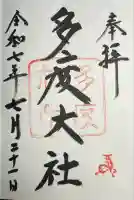 奉拝
多度大社
令和七年七月二十一日